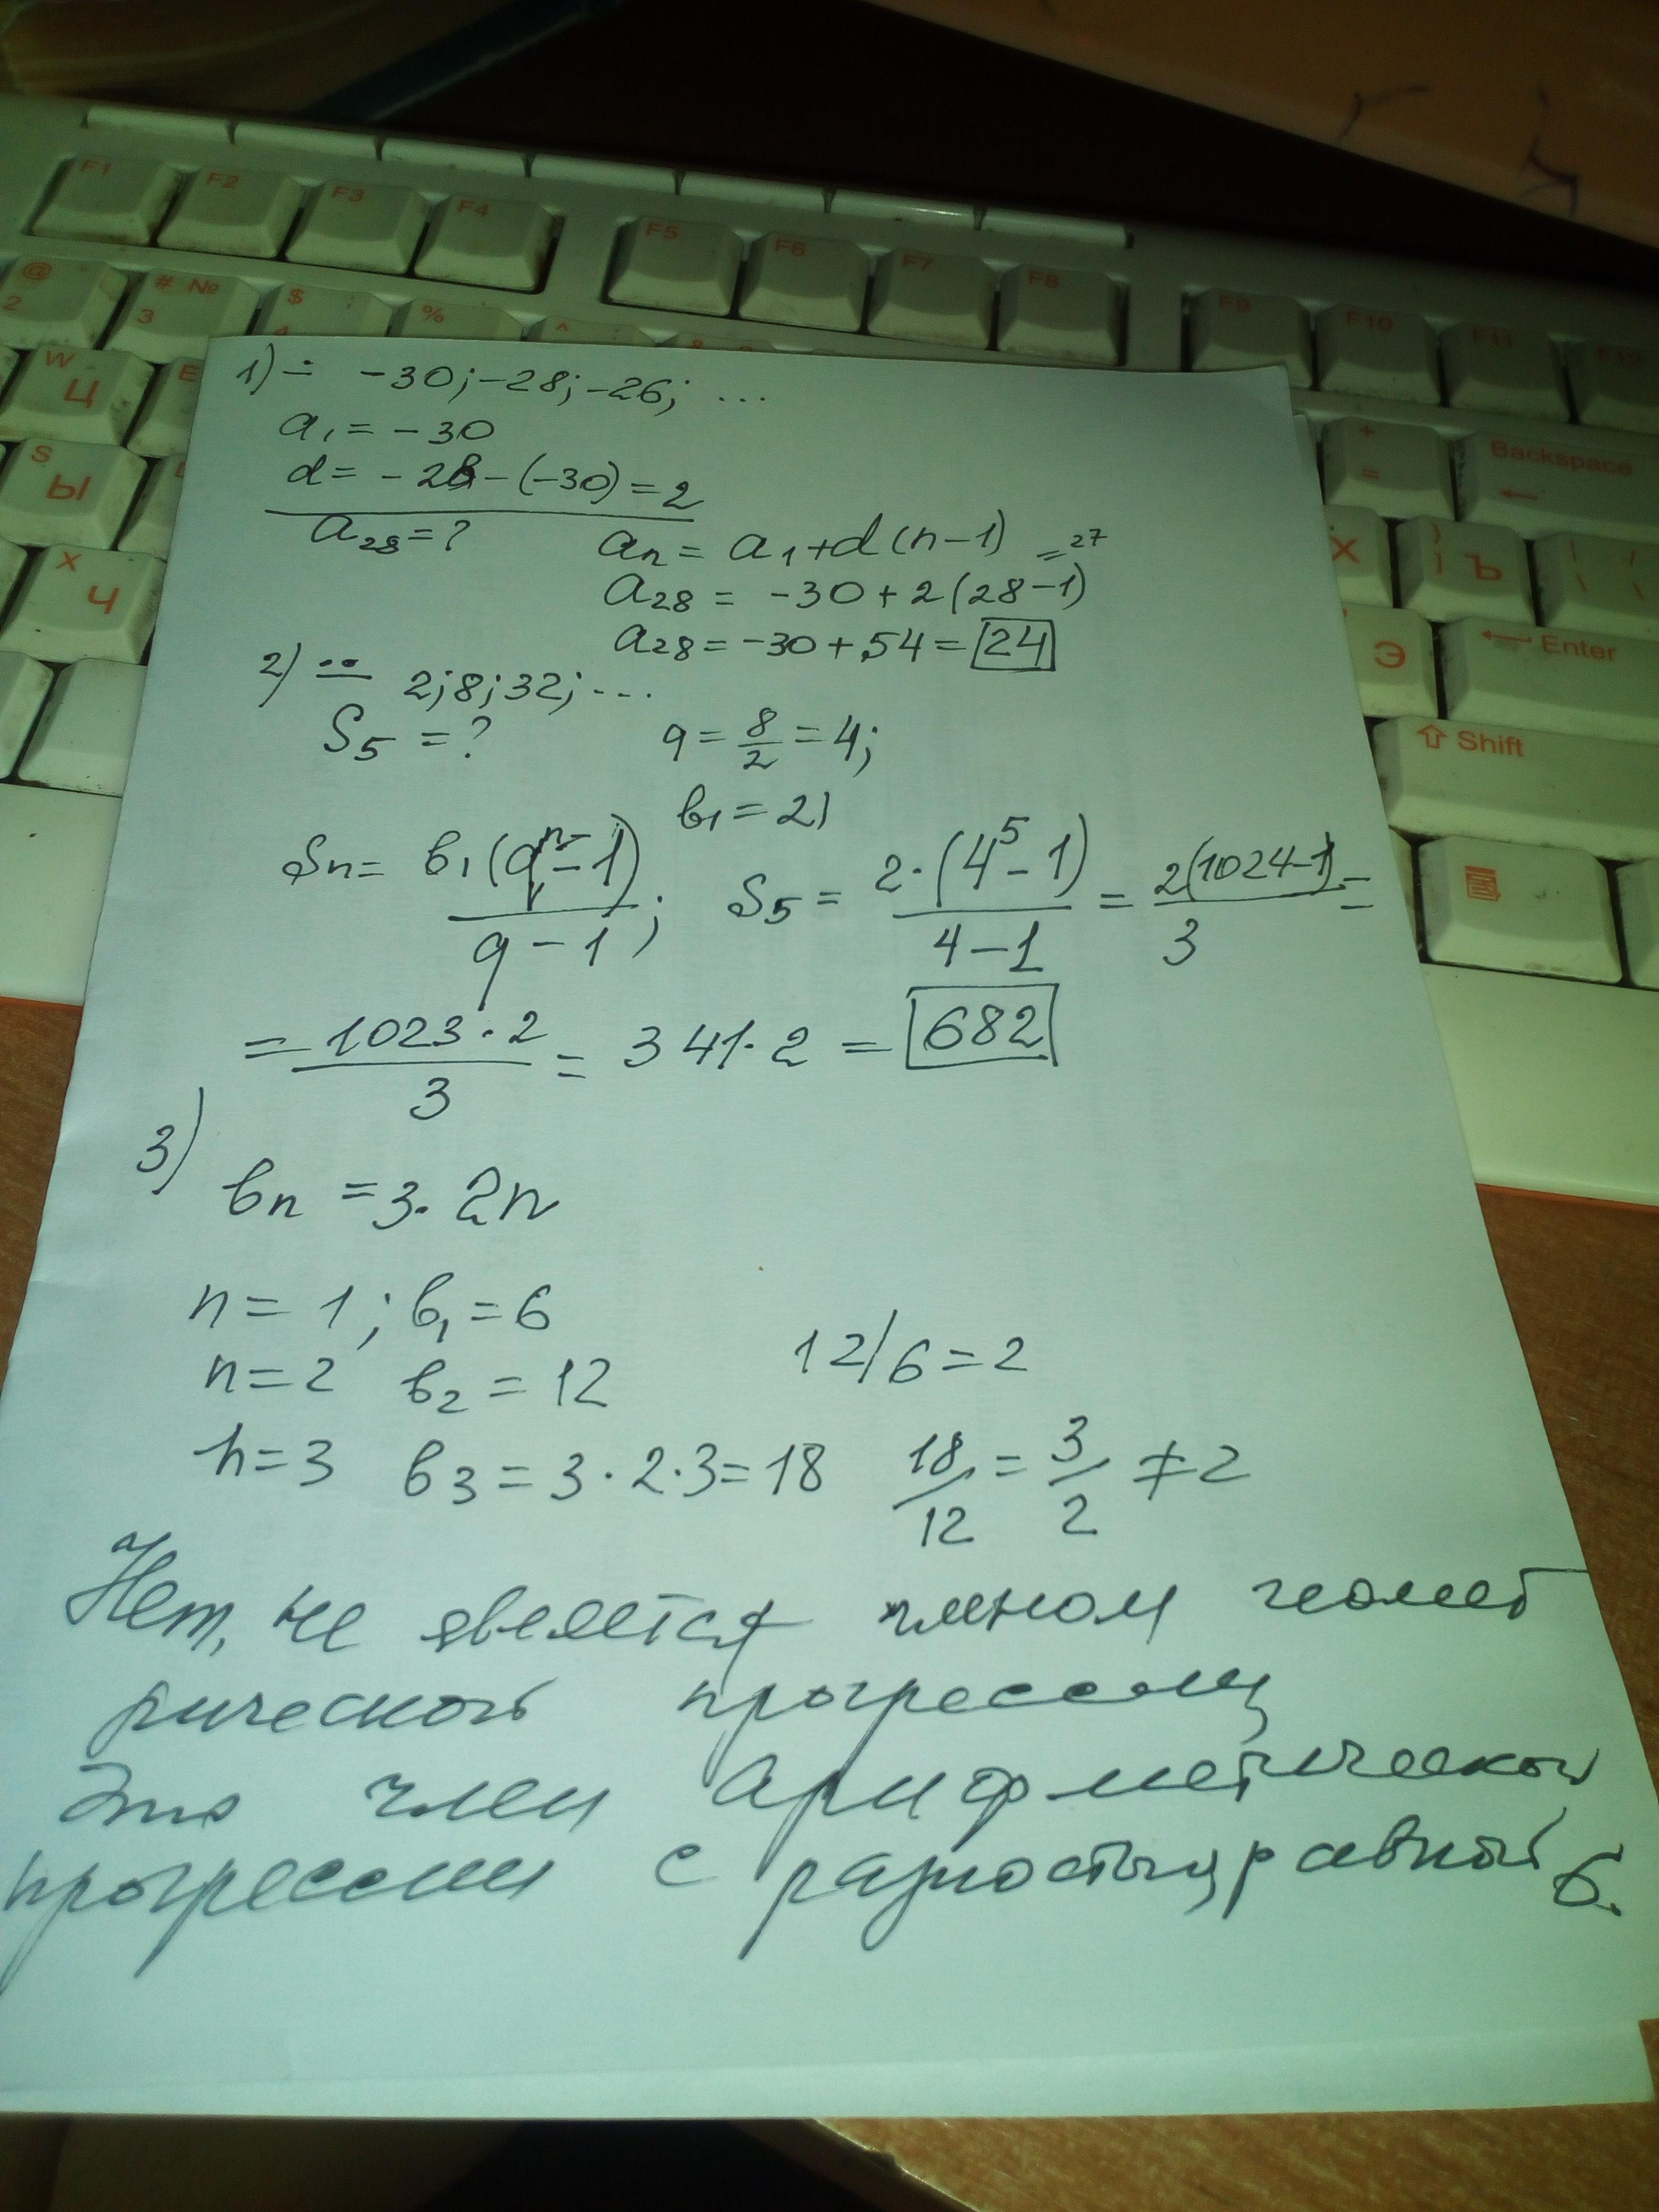 F1 F2 F3 F4 F5 F6 F7 F8 F9 F10 F11 F12
@ 2 # № 3 $ ; 4 % ^
W Ц E + = Backspace
S Ы Х } ] Ъ
X Ч Э Enter
Shift
1) ÷ -30; -28; -26; ...
a₁ = -30
d = -28 - (-30) = 2
a₂₈ = ? aₙ = a₁ + d(n-1) =27
a₂₈ = -30 + 2(28-1)
a₂₈ = -30 + 54 = 24
2) 2; 8; 32; ...
S₅ = ? q = 8/2 = 4;
в₁ = 2;
Sₙ = в₁(qⁿ-1)/(q-1); S₅ = 2·(4⁵-1)/(4-1) = 2(1024-1)/3 =
= 1023·2/3 = 341·2 = 682
3)
вₙ = 3·2n
n = 1; в₁ = 6
n = 2 в₂ = 12 12/6 = 2
n = 3 в₃ = 3·2·3 = 18 18/12 = 3/2 ≠ 2
Нет, не является членом геомет
рической прогрессии
Это член арифметической
прогрессии с разностью равной 6.